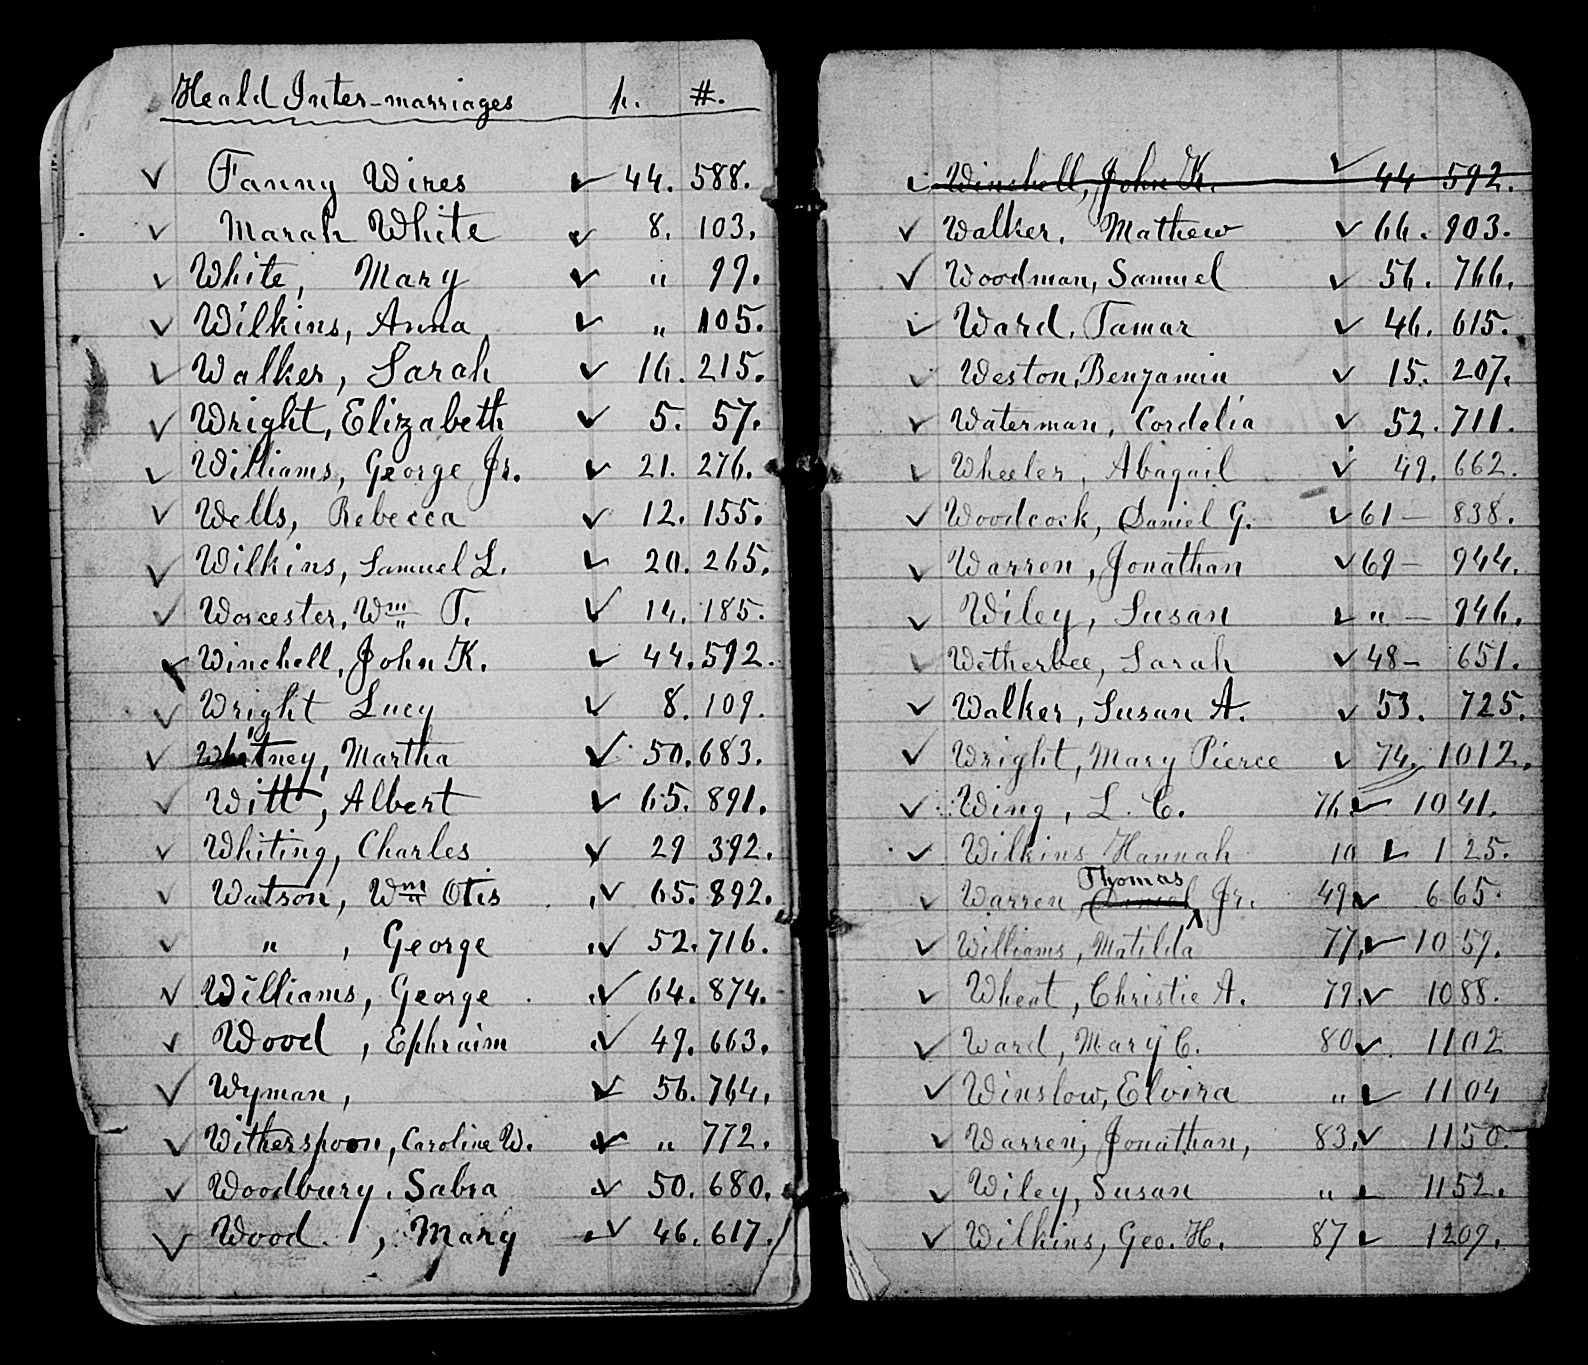 Heald Inter-marriages p. #.
✓ Fanny Wires ✓ 44. 588.
✓ Marah White ✓ 8. 103.
✓ White, Mary ✓ " 99.
✓ Wilkins, Anna ✓ " 105.
✓ Walker, Sarah ✓ 16. 215.
✓ Wright, Elizabeth ✓ 5. 57.
✓ Williams, George Jr. ✓ 21. 276.
✓ Wells, Rebecca ✓ 12. 155.
✓ Wilkins, Samuel L. ✓ 20. 265.
✓ Worcester, Wm T. ✓ 14. 185.
✓ Winchell, John K. ✓ 44. 592.
✓ Wright Lucy ✓ 8. 109.
✓ Whitney, Martha ✓ 50. 683.
✓ Witt, Albert ✓ 65. 891.
✓ Whiting, Charles ✓ 29 392.
✓ Watson, Wm Otis ✓ 65. 892.
✓ " , George ✓ 52. 716.
✓ Williams, George ✓ 64. 874.
✓ Wood , Ephraim ✓ 49. 663.
✓ Wyman, ✓ 56. 764.
✓ Witherspoon, Caroline W. ✓ " 772.
✓ Woodbury, Sabra ✓ 50. 680.
✓ Wood , Mary ✓ 46. 617.
✓ Winchell, John K. ✓ 44 592.
✓ Walker, Mathew ✓ 66. 903.
✓ Woodman, Samuel ✓ 56. 766.
✓ Ward, Tamar ✓ 46. 615.
✓ Weston, Benjamin ✓ 15. 207.
✓ Waterman, Cordelia ✓ 52. 711.
✓ Wheeler, Abagail ✓ 49. 662.
✓ Woodcock, Daniel G. ✓ 61 — 838.
✓ Warren, Jonathan ✓ 69 — 944.
✓ Wiley, Susan ✓ " — 946.
✓ Wetherbee, Sarah ✓ 48 — 651.
✓ Walker, Susan A. ✓ 53. 725.
✓ Wright, Mary Pierce ✓ 74. 1012.
✓ Wing, L. C. 76 ✓ 1041.
✓ Wilkins Hannah 10 ✓ 125.
✓ Warren, Daniel Thomas Jr. 49 ✓ 665.
✓ Williams, Matilda 77. ✓ 1059.
✓ Wheat, Christie A. 79. ✓ 1088.
✓ Ward, Mary C. 80 ✓ 1102
✓ Winslow, Elvira " ✓ 1104
✓ Warren, Jonathan, 83. ✓ 1150.
✓ Wiley, Susan " ✓ 1152.
✓ Wilkins, Geo. H. 87 ✓ 1209.